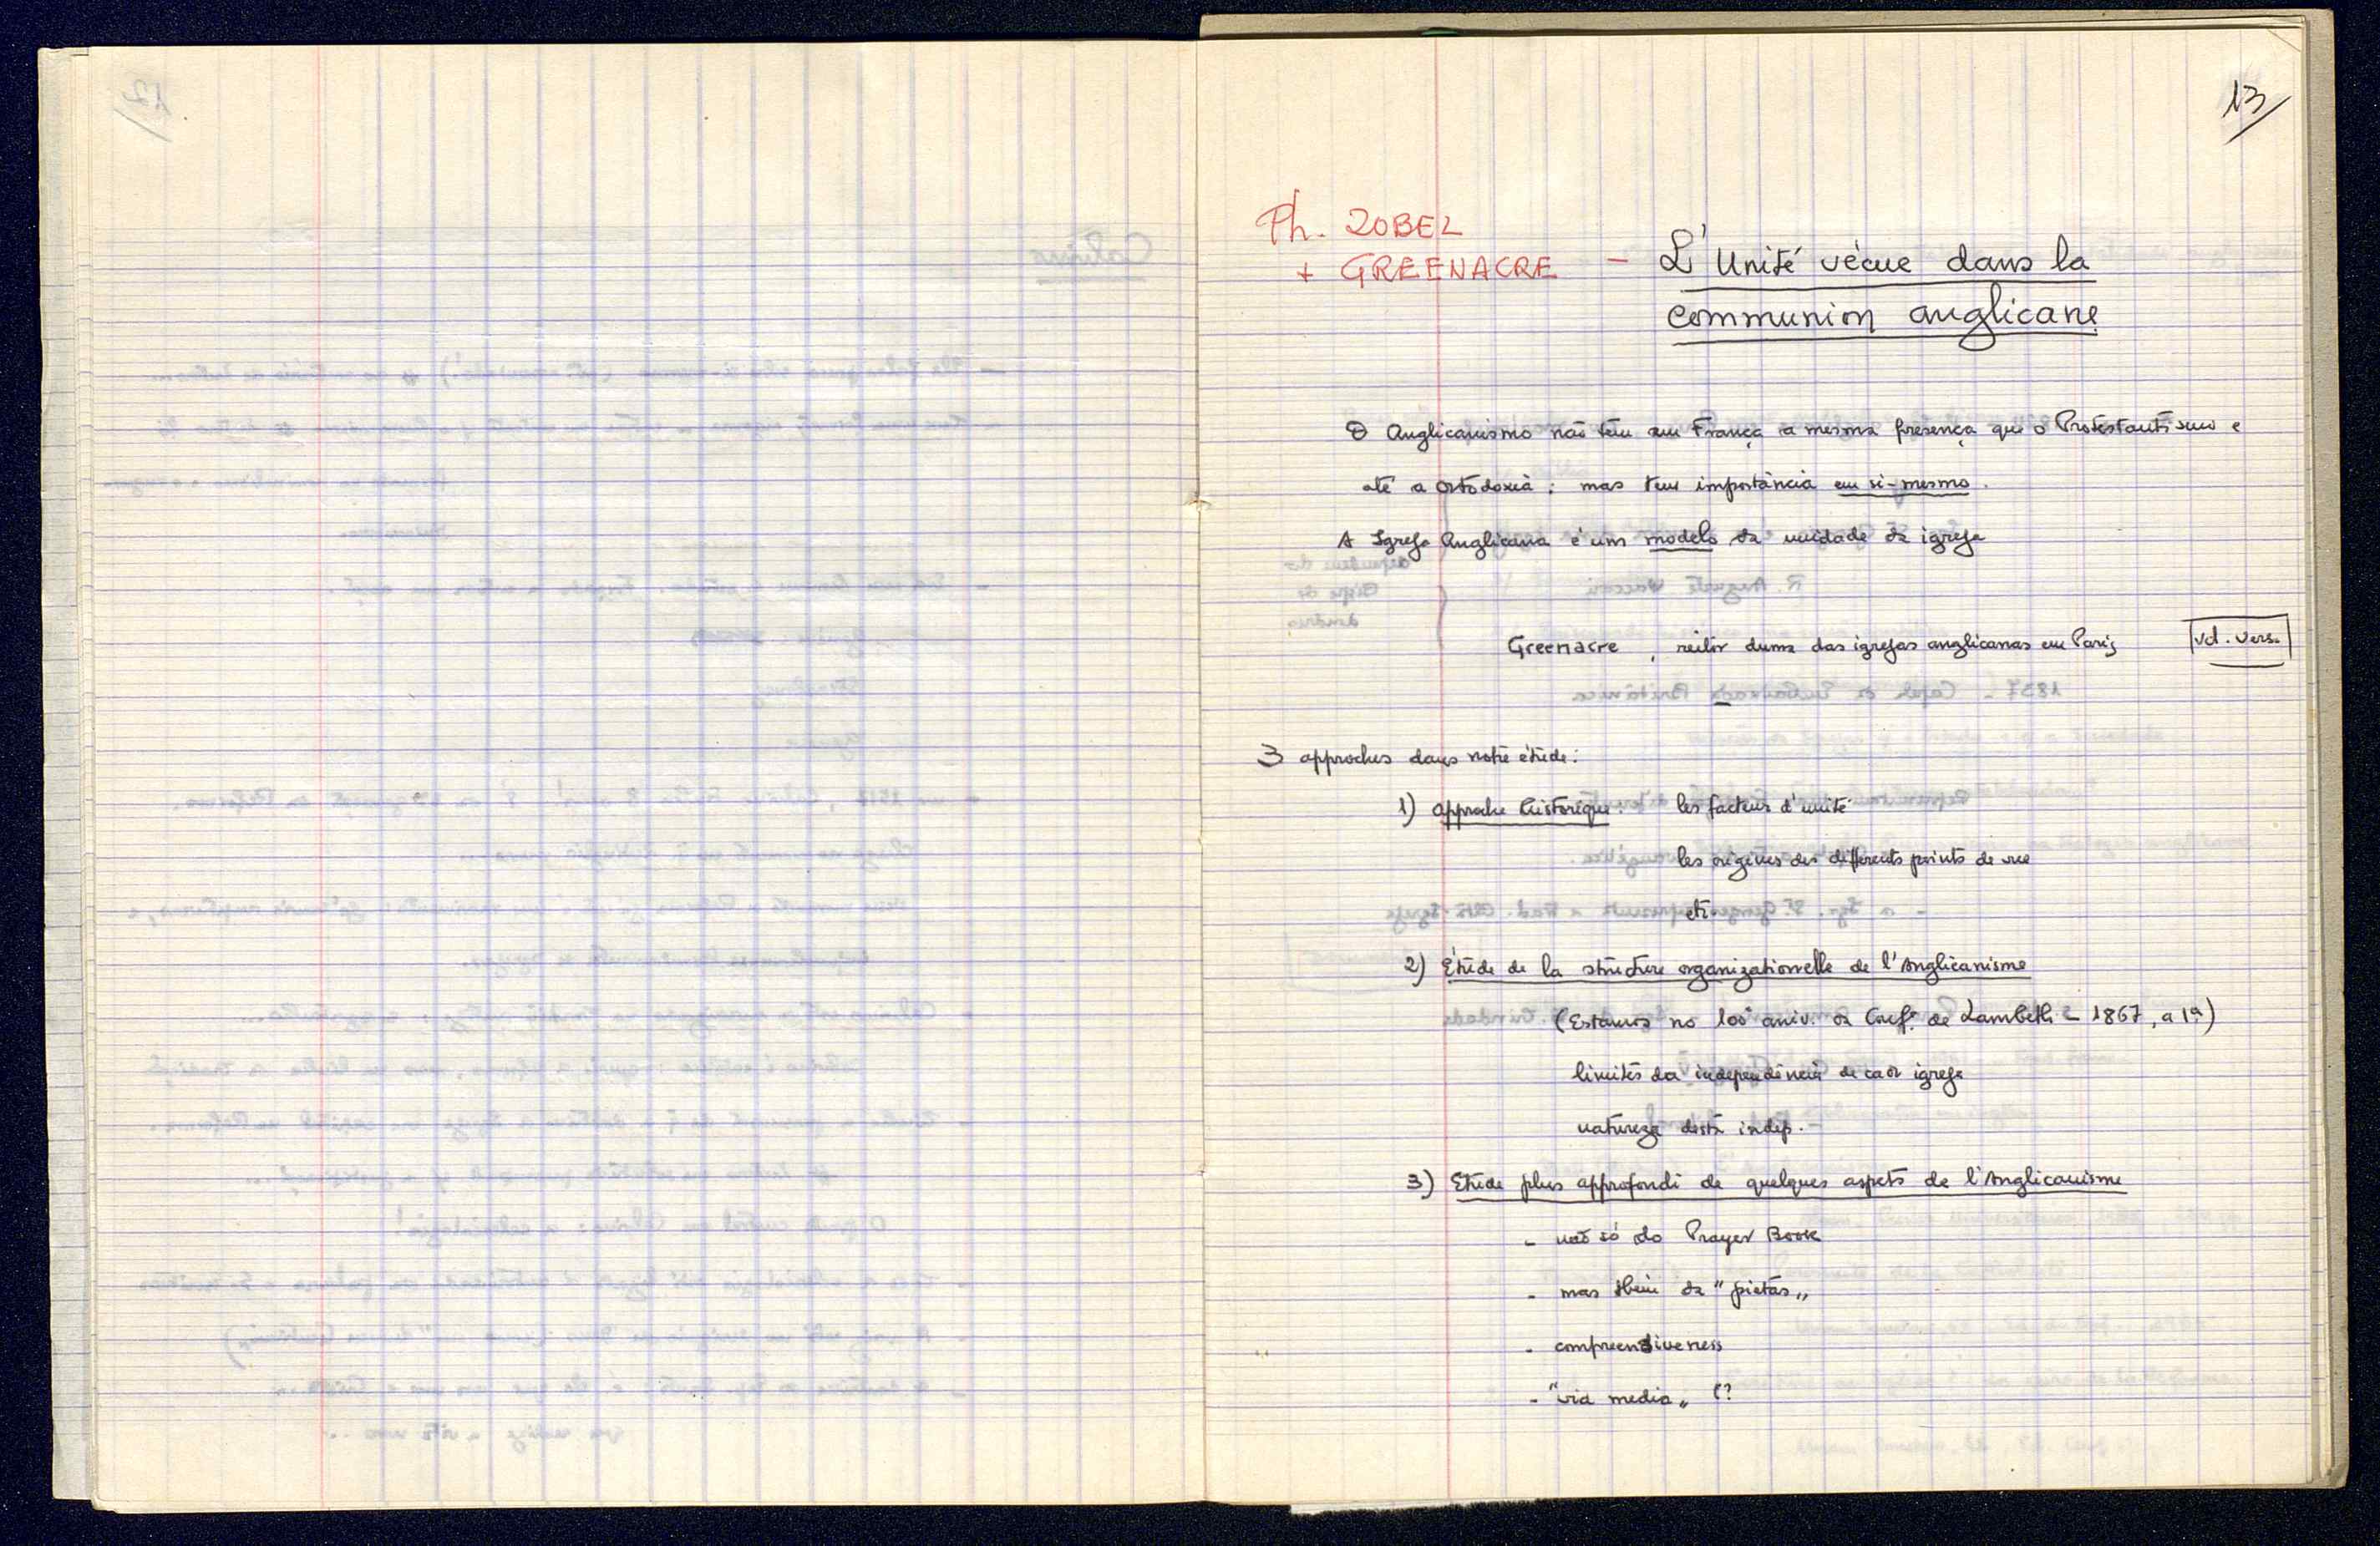 13
Ph. ZOBEL
+ GREENACRE - L'Unité vécue dans la
communion anglicane
O Anglicanismo não tem em França a mesma presença que o Protestantismo e
até a ortodoxia ; mas tem importância em si-mesmo.
A Igreja Anglicana é um modelo da unidade da igreja
Greenacre , reitor duma das igrejas anglicanas em Paris vd. vers.
3 approches dans notre étude :
1) approche historique : les facteurs d'unité
les origines des différents points de vue
etc.
2) Étude de la structure organizationnelle de l'Anglicanisme
(Estamos no 100º aniv. da Conf.ª de Lambeth - 1867, a 1ª)
limites da independência de cada igreja
natureza desta indep.
3) Etude plus approfondi de quelques aspets de l'Anglicanisme
- não só do Prayer Book
- mas tbém da "pietas"
- compreensiveness
- "via media" (?